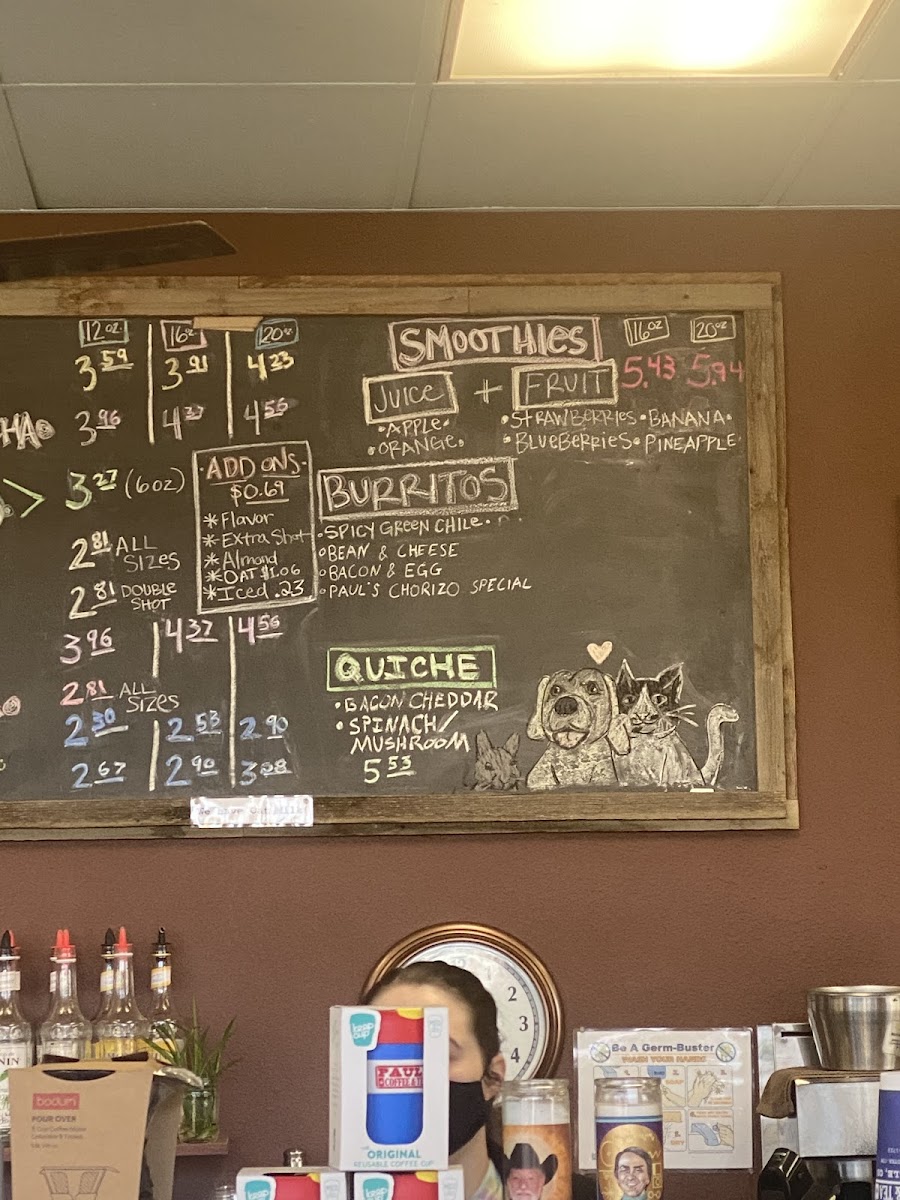 12oz. 16oz 20oz.
3.59 3.91 4.23
HA
3.96 4.37 4.56
3.27 (6oz)
2.81 ALL SIZES
2.81 DOUBLE SHOT
3.96 4.37 4.56
2.81 ALL SIZES
2.30 2.53 2.90
2.67 2.90
·ADD ONS·
$0.69
*Flavor
*Extra Shot
*Almond
*OAT $1.06
*Iced .23
SMOOTHIES 16oz 20oz.
JUICE + FRUIT 5.43 5.94
•APPLE• •STRAWBERRIES •BANANA•
•ORANGE• •BLUEBERRIES• PINEAPPLE•
BURRITOS
•SPICY GREEN CHILE•
•BEAN & CHEESE
•BACON & EGG
•PAUL'S CHORIZO SPECIAL
QUICHE
•BACON CHEDDAR
•SPINACH/
MUSHROOM
5.53
2
3
4
keep cup
PAUL'S
ORIGINAL
REUSABLE COFFEE CUP
bodum
POUR OVER
Be A Germ-Buster
WASH YOUR HANDS
SOAP